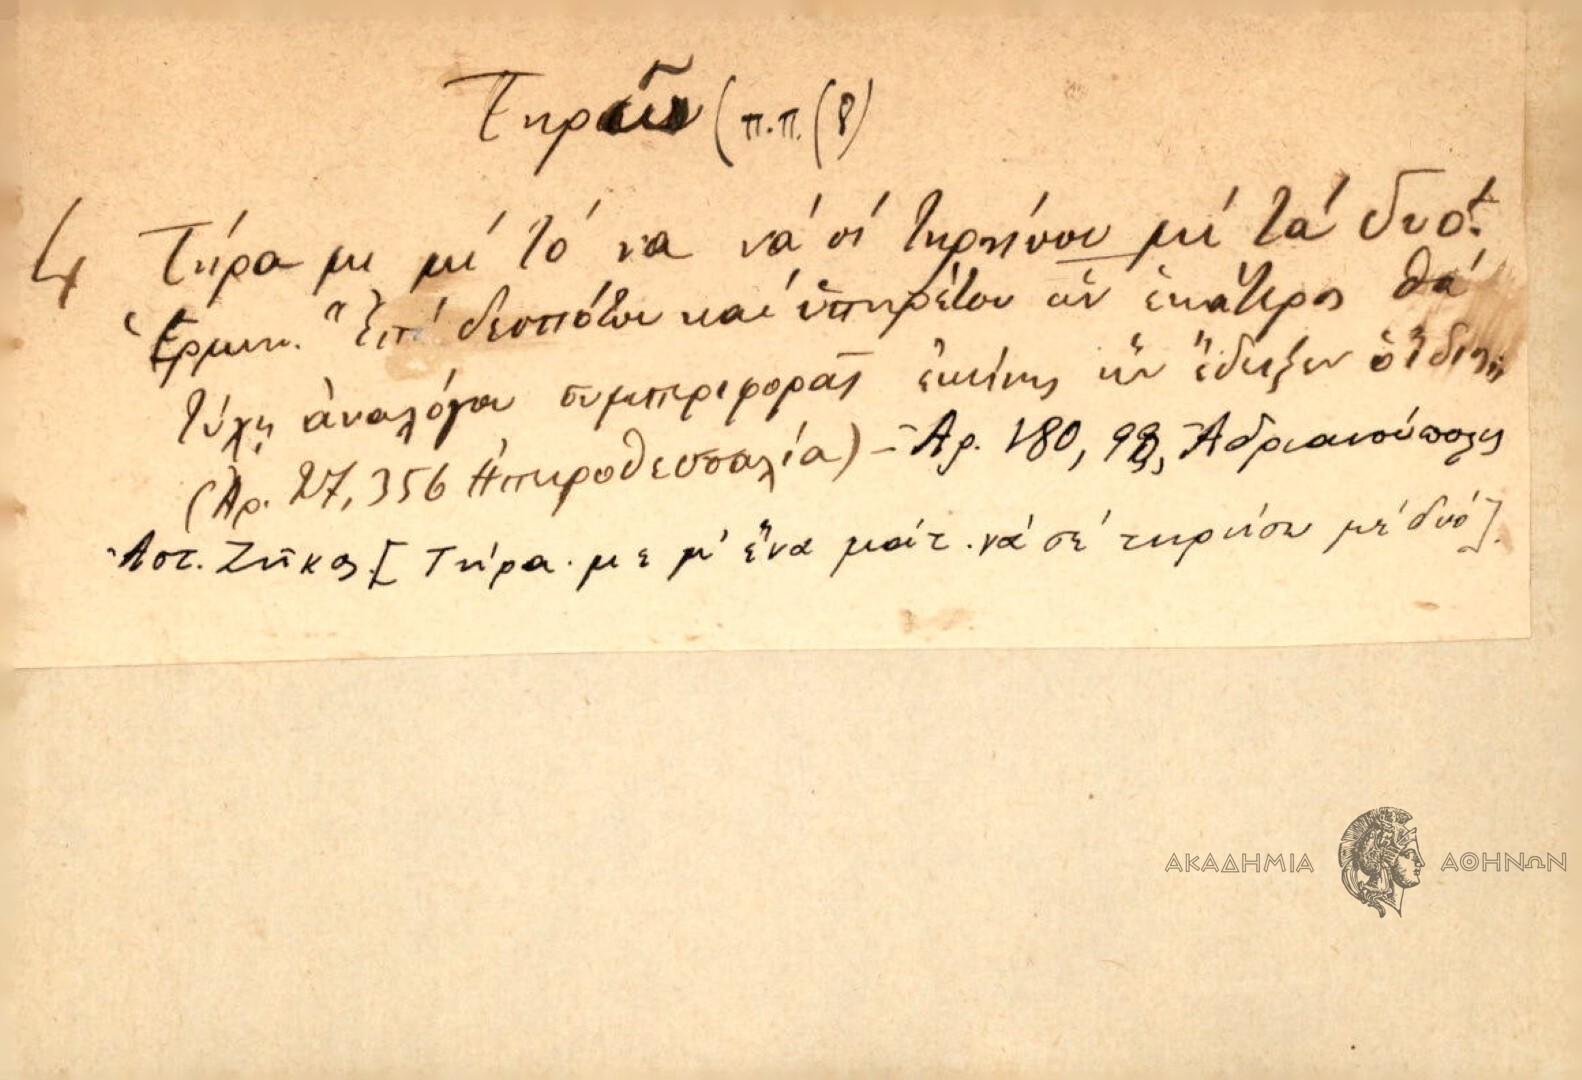 Τηρῶ (π.π. (8)
4 Τήρα με μέ τό να νά σέ τηρήσου μέ τά δυό.
Ἑρμην. "Ἐπί δεσπότου καί ὑπηρέτου ὧν ἑκάτερος θά
τύχῃ ἀναλόγου συμπεριφορᾶς ἐκείνης ἥν ἔδειξεν ὁ
(Ἀρ. 27, 356 Ἠπειροθεσσαλία) – Ἀρ. 180, Ἀδριανούπολις
Ἀστ. Ζῆκος [Τήρα με μ' ἕνα μάτ' νά σέ τηρήσω μέ δυό].
ΑΚΑΔΗΜΙΑ ΑΘΗΝΩΝ